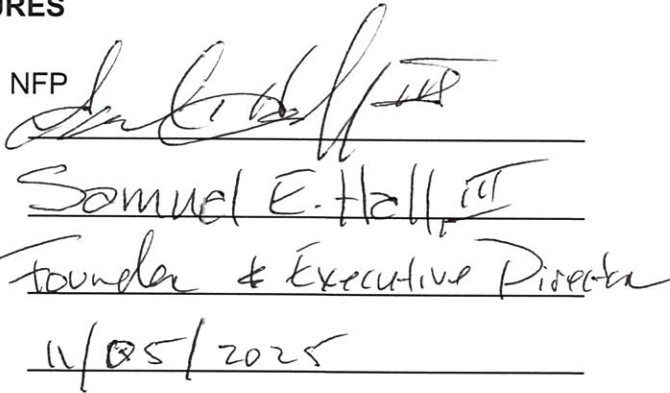 URES
NFP
Samuel E. Hall, III
Founder & Executive Director
11/05/2025